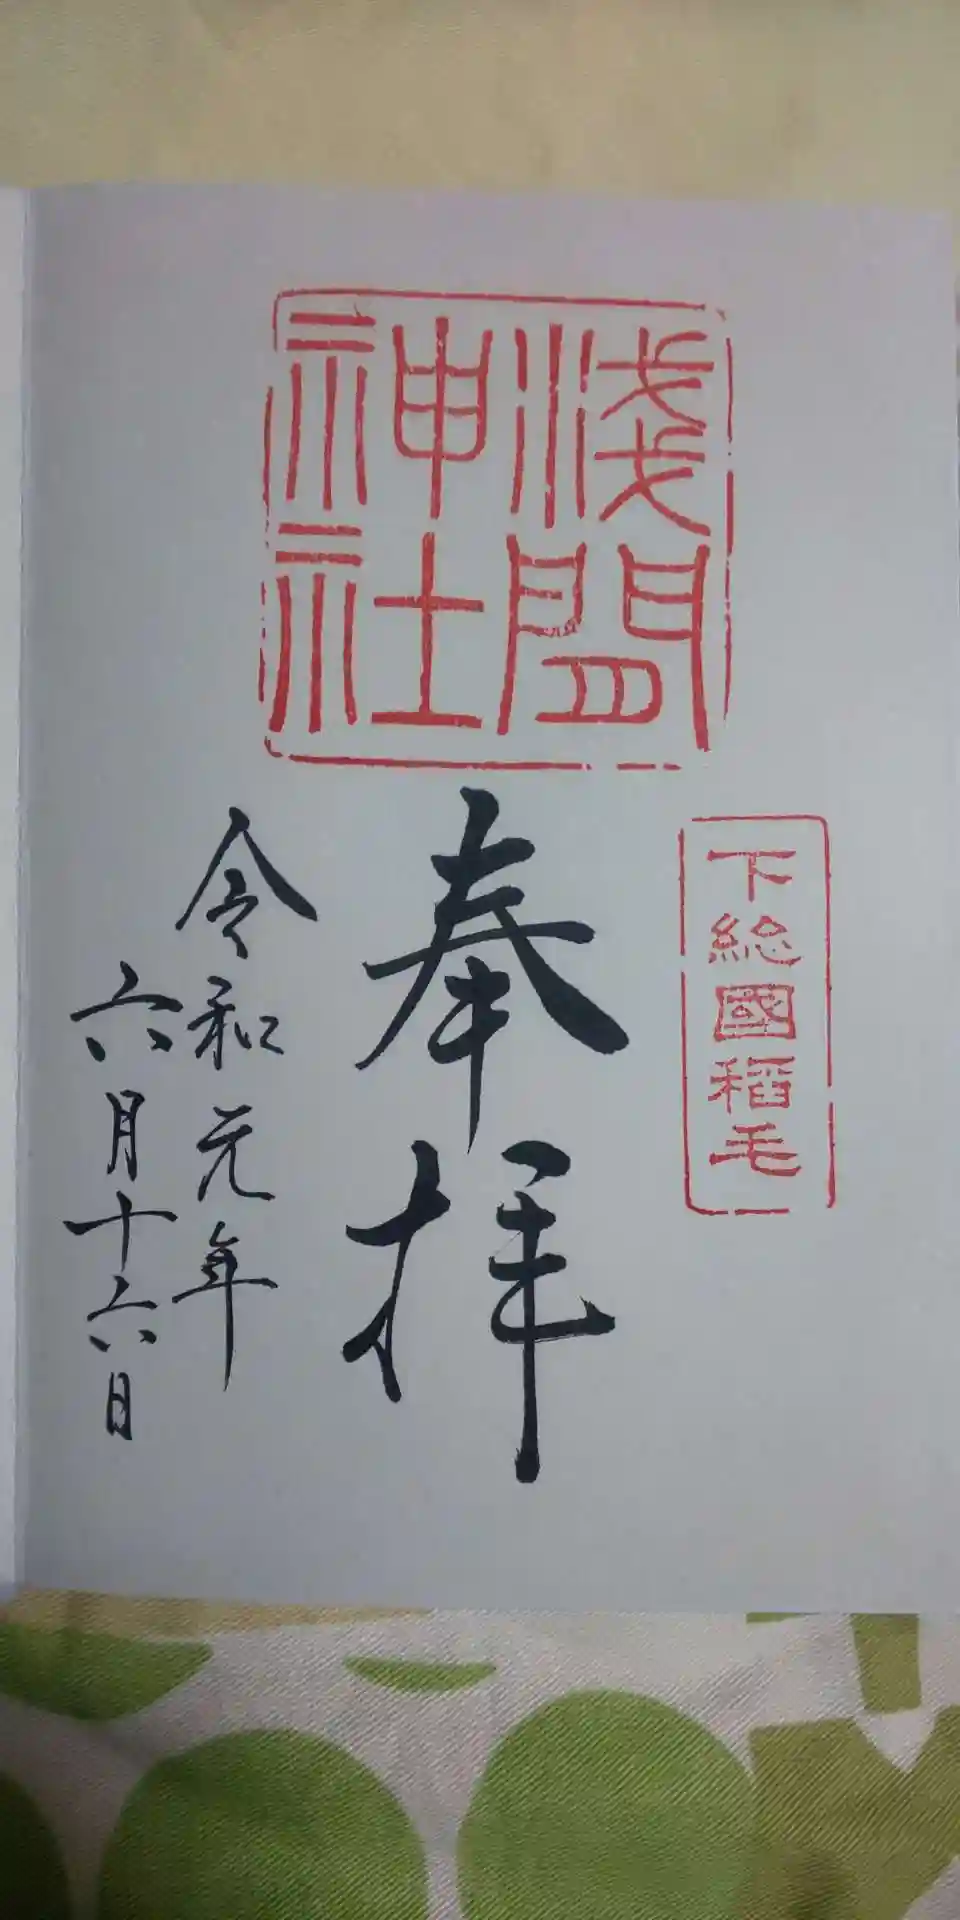 淺間
神社
下総國稲毛
奉拝
令和元年
六月十六日